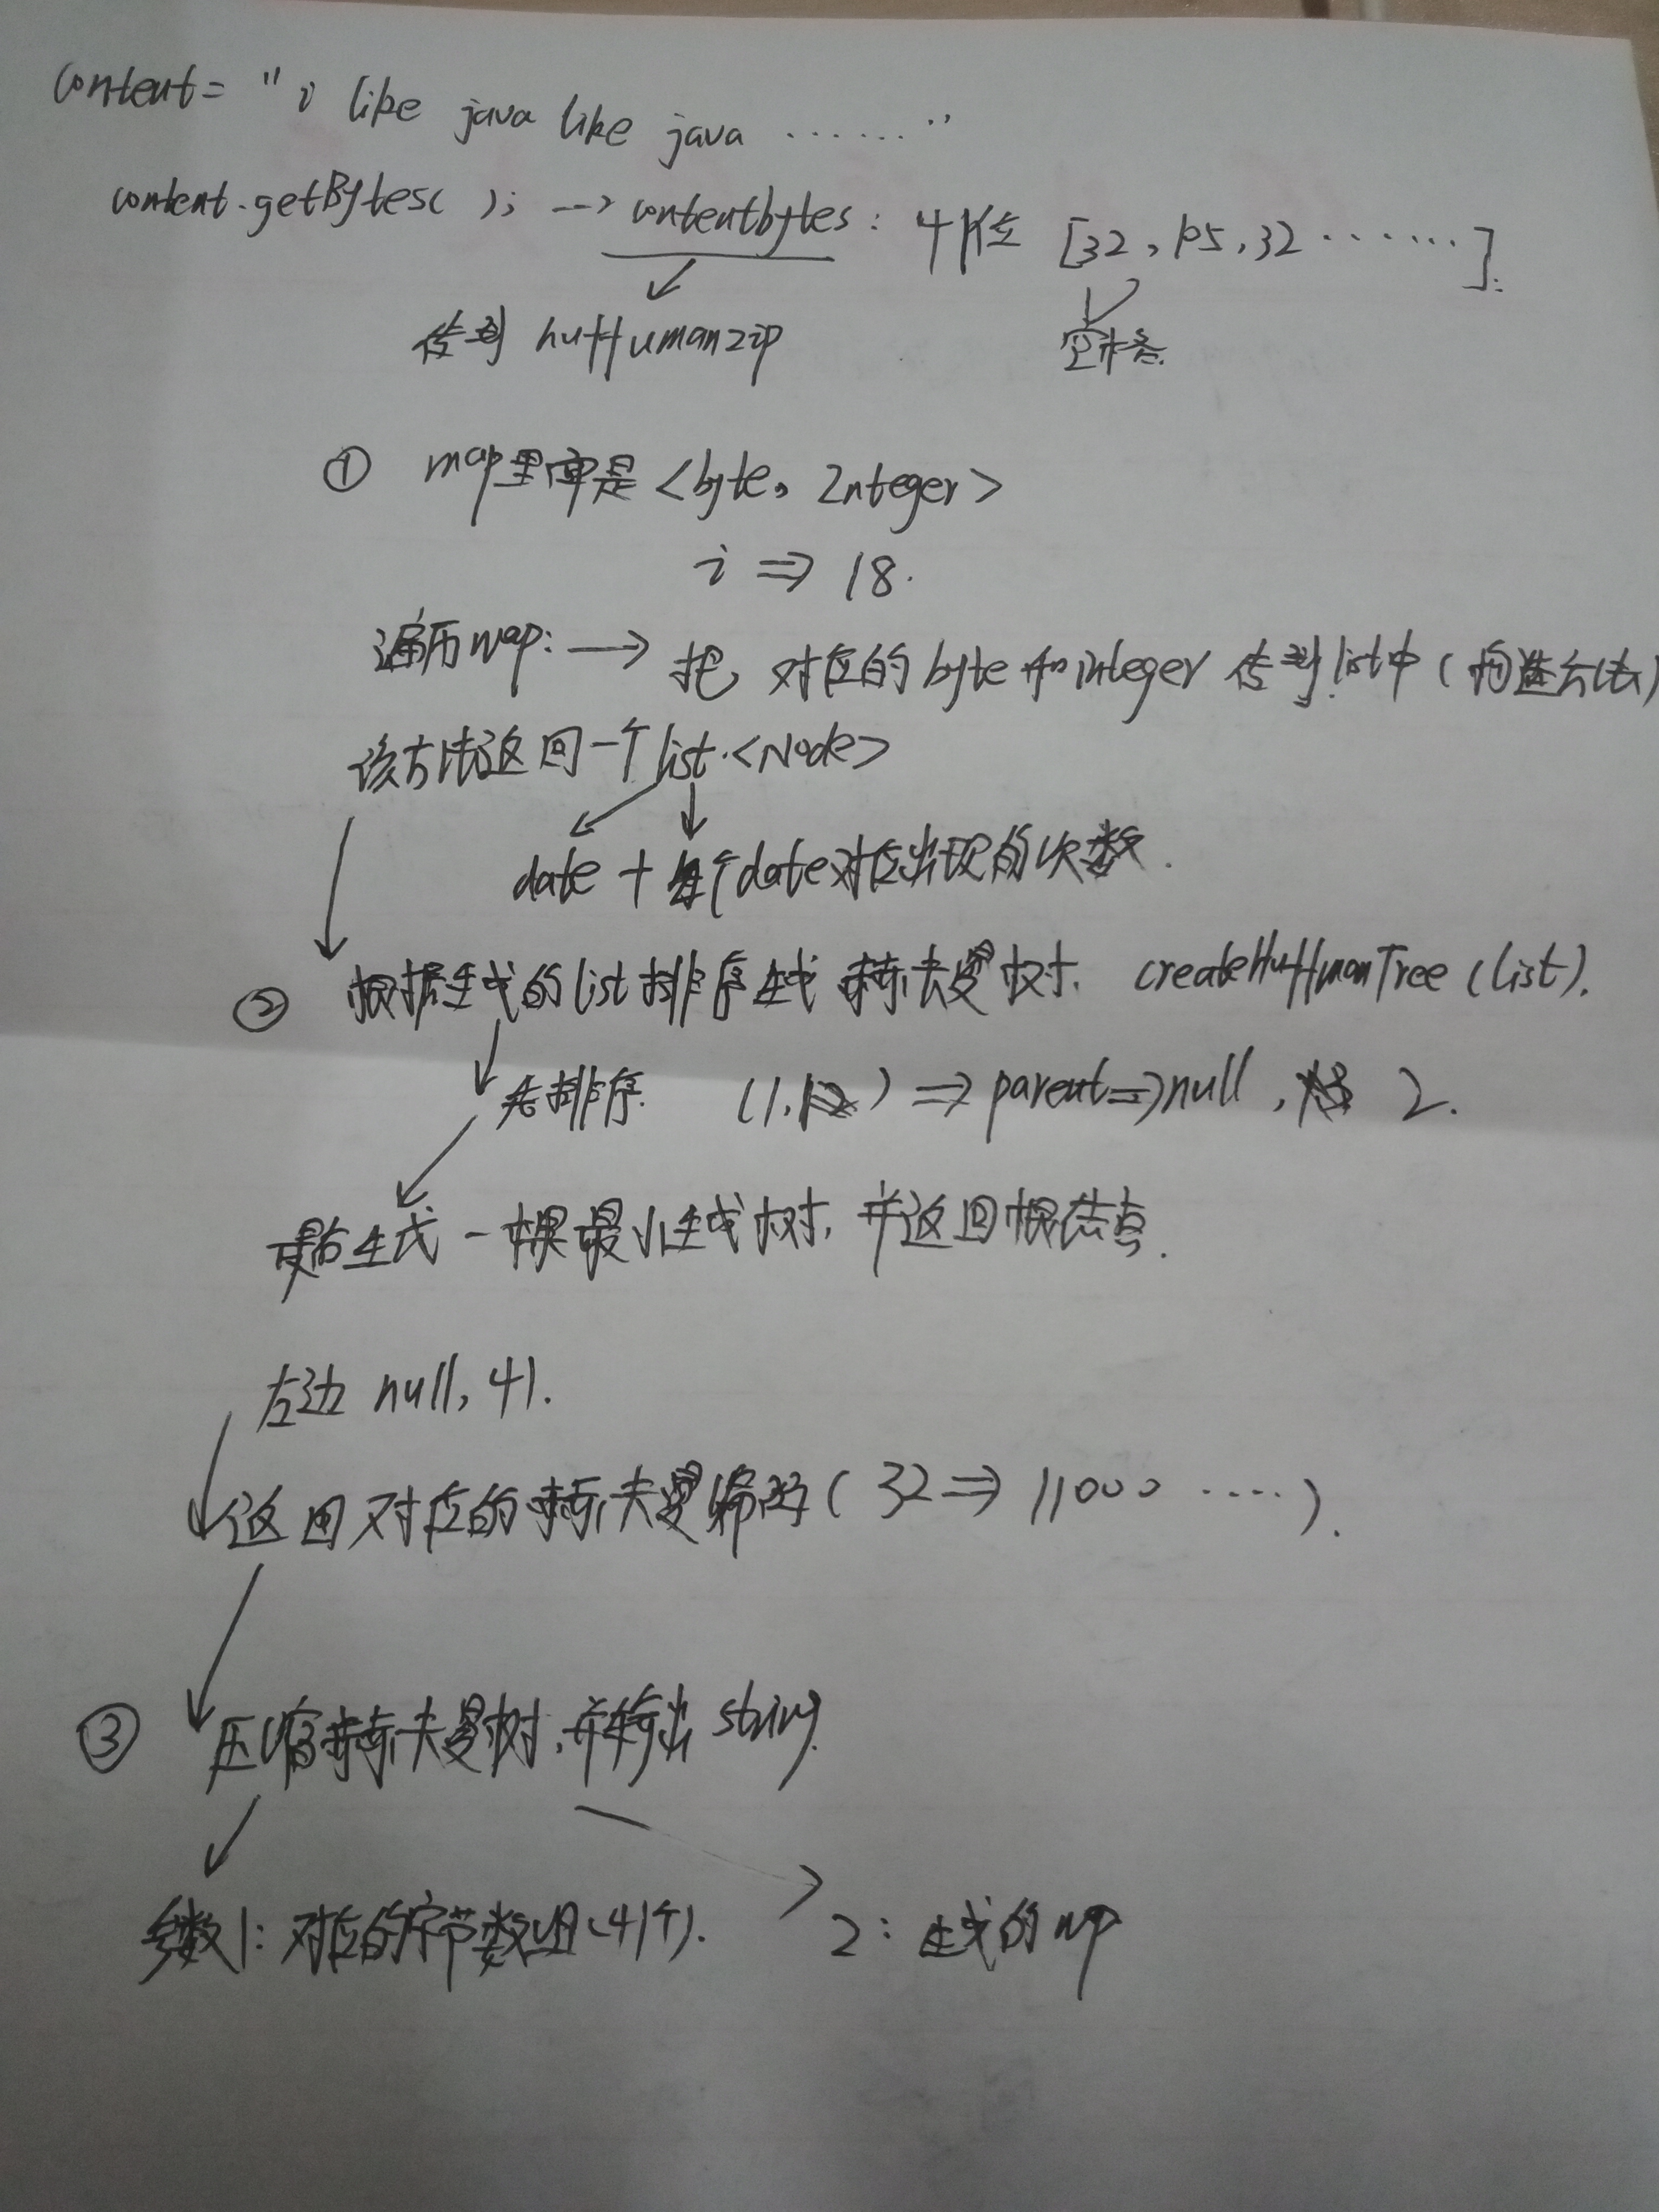 content= " i like java like java ······· "
content.getBytes( ); → contentbytes: 41位 [32, 105, 32 ·······].
传到 huffumanzip 空格.
① map里面是 <byte, Integer>
i ⇒ 18.
遍历map: → 把 对应的 byte 和 integer 传到list中 (构造方法)
该方法返回一个 list.<Node>
date + 每个date对应出现的次数.
② 根据生成的list排序生成 赫夫曼树. createHuffmanTree (list).
先排序. (1, ) ⇒ parent ⇒ null, 2.
最后生成一棵最小生成树, 并返回根结点.
左边 null, 41.
返回对应的赫夫曼编码 ( 32 ⇒ 11000 ····).
③ 压缩赫夫曼树, 并输出 string.
参数1: 对应的字节数组(41个). 2: 生成的map